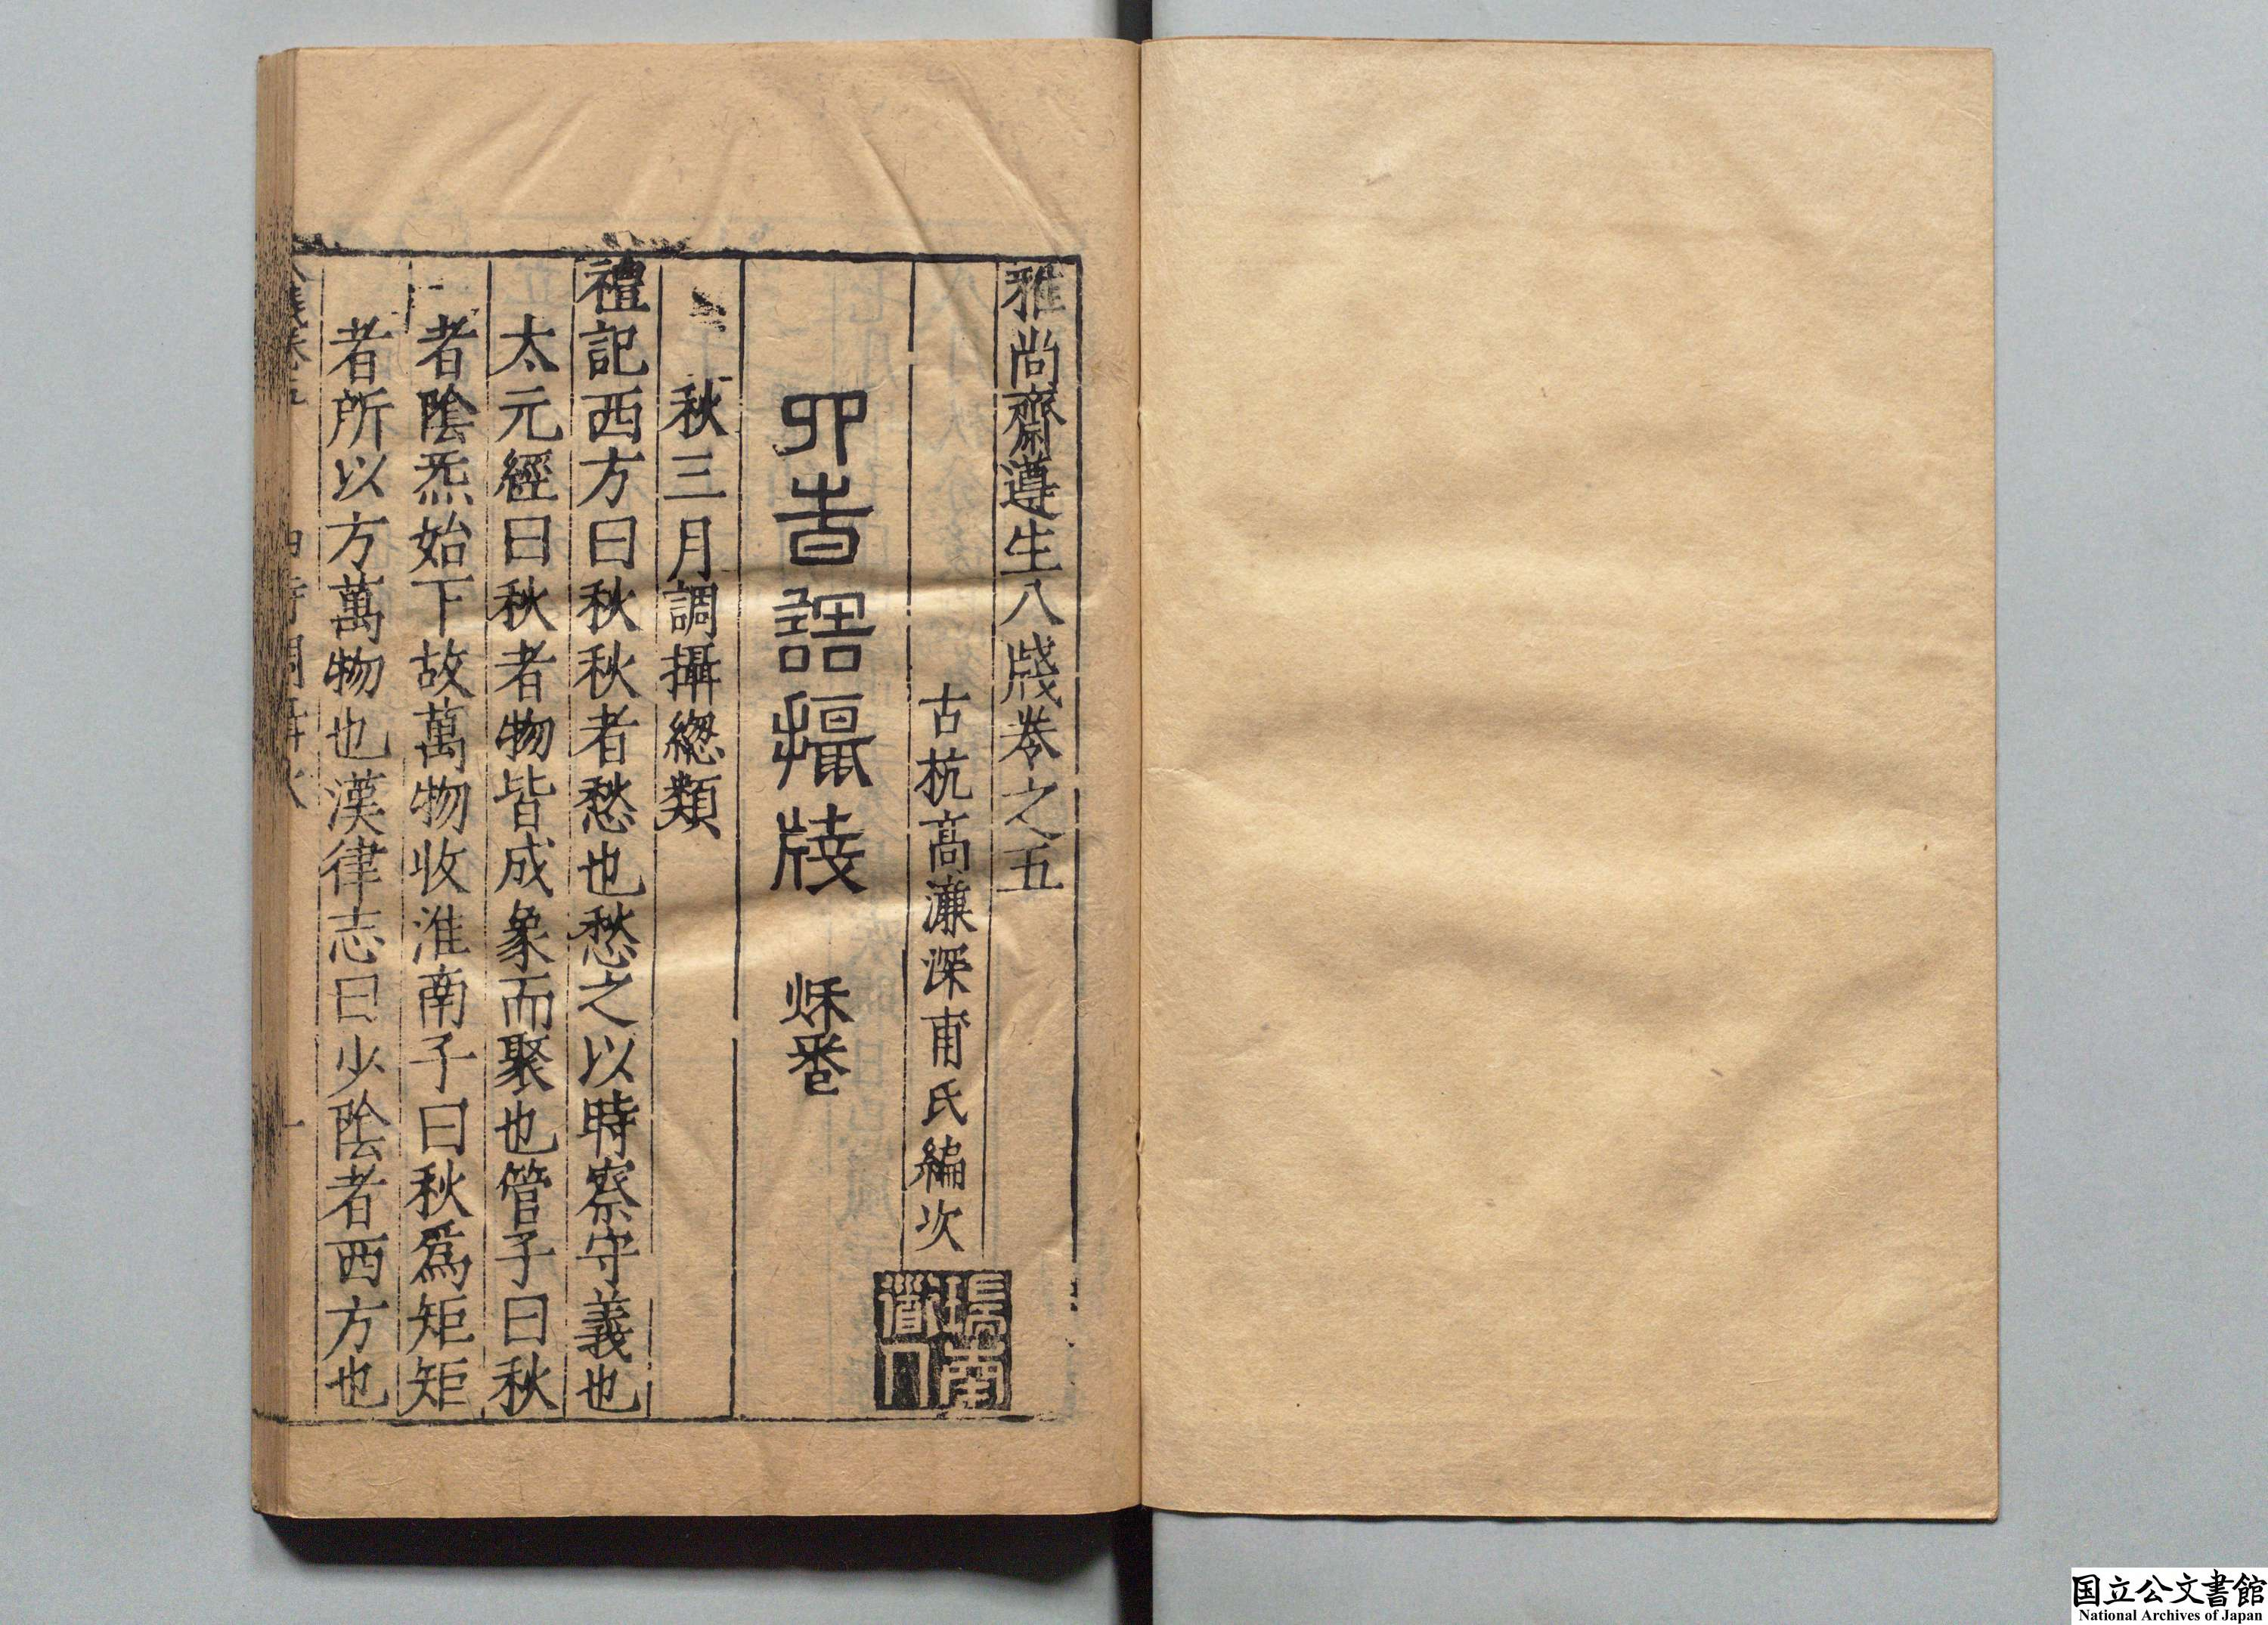 雅尚齋遵生八牋卷之五
古杭高濂深甫氏編次
瑞南道人
四時調攝牋 秋卷
秋三月調攝緫類
禮記西方曰秋秋者愁也愁之以時察守義也
太元經曰秋者物皆成象而聚也管子曰秋
者陰炁始下故萬物收淮南子曰秋爲矩矩
者所以方萬物也漢律志曰少陰者西方也
国立公文書館
National Archives of Japan